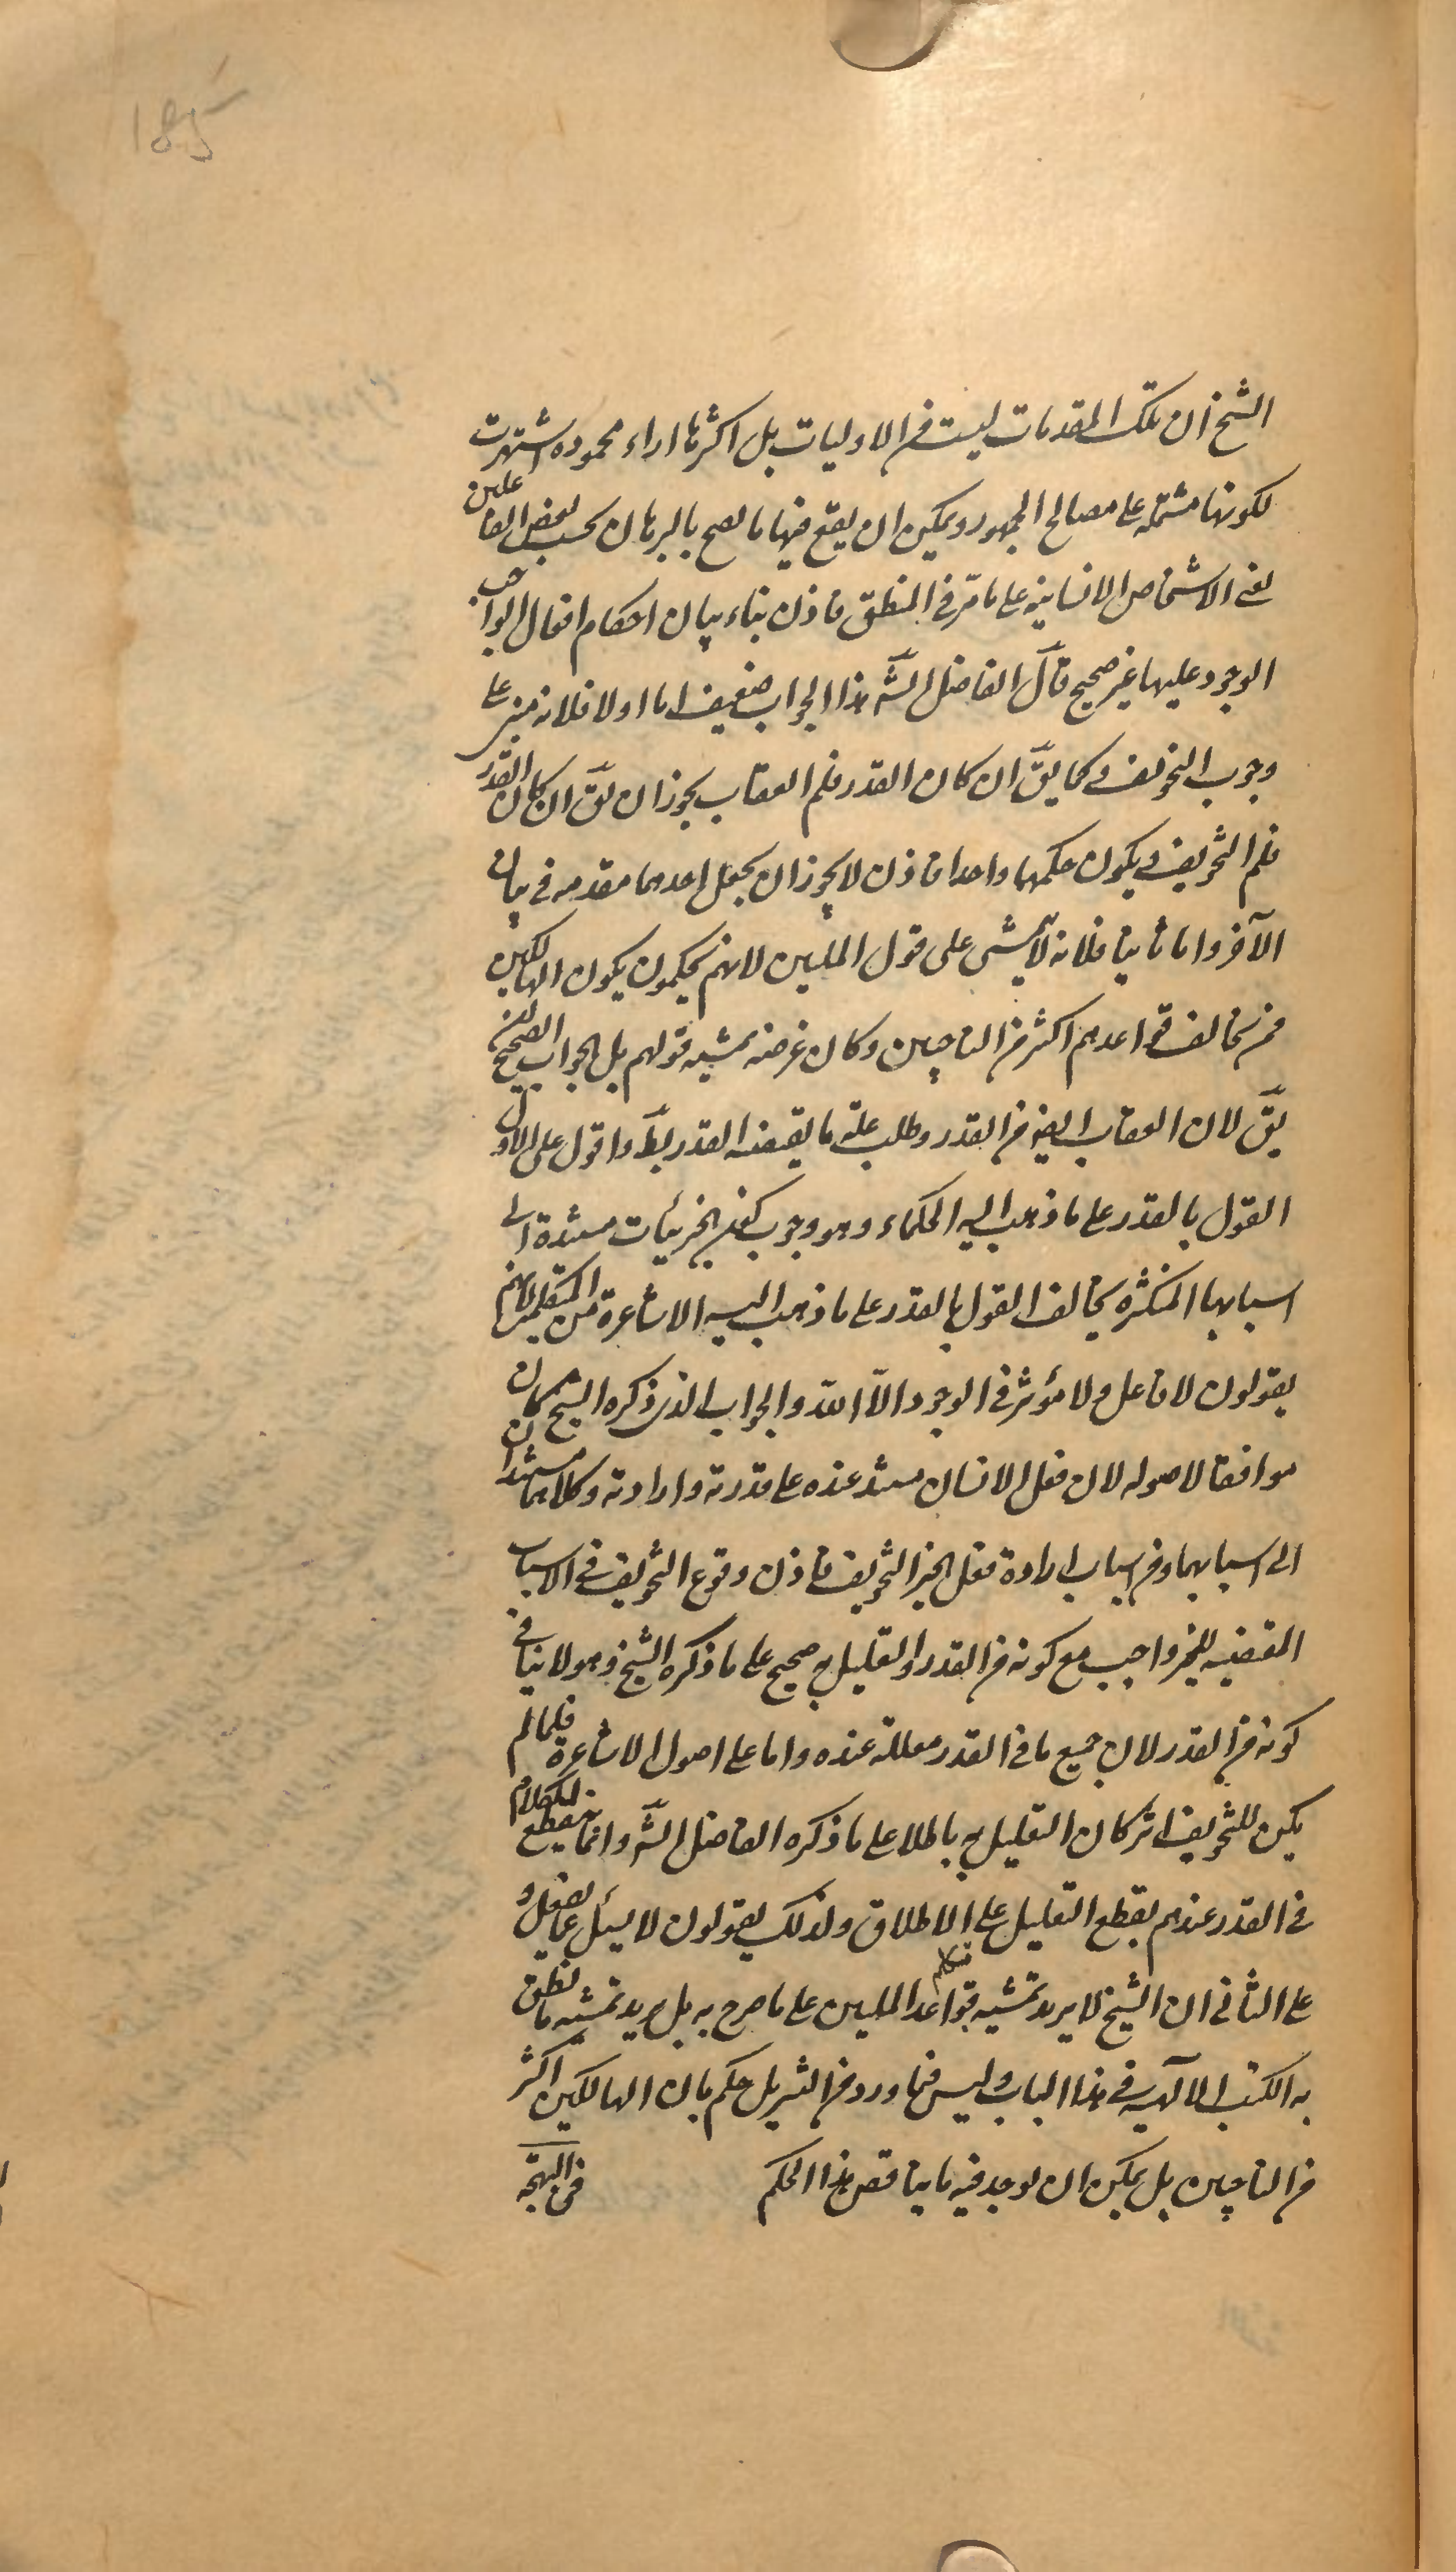 185
الشیخ ان تلک المقدمات لیست من الاولیات بل اکثرها اراء محموده اشتهرت
لکونها مشتمله علی مصالح الجمهور ویمکن ان یقع فیها ما یصح بالبرهان بحسب بعض الفاعلین
یعنی الاشخاص الانسانیه علی ما مرّ فی المنطق فاذن بناء بیان احکام افعال الواجب
الوجود علیها غیر صحیح قال الفاضل الشّه هذا الجواب ضعیف اما اولا فلانه مبنی علی
وجوب التخویف وکما یقّ ان کان القدر فلم العقاب یجوز ان یقّ ان کان القدر
فلم التخویف ویکون حکمهما واحدا فاذن لا یجوز ان یجعل احدهما مقدمه فی بیان
الآخر واما ثانیا فلانه لا یتمشی علی قول الملیین لانهم یحکمون بکون الهالکین
ممن یخالف قواعدهم اکثر من الناجین وکان غرضه تمشیه قولهم بل الجواب الصحیح ان
یقّ لان العقاب ایضا من القدر وطلب علّه ما یقتضیه القدر بطّ واقول علی الاول
القول بالقدر علی ما ذهب الیه الحکماء وهو وجوب کون الجزئیات مستندة الی
اسبابها المتکثره یخالف القول بالقدر علی ما ذهب الیه الاشاعرة من المتکلمین لانهم
یقولون لا فاعل ولا مؤثر فی الوجود الّا الله والجواب الذی ذکره الشیخ کان
موافقا لاصوله لان فعل الانسان مستند عنده علی قدرته وارادته وکلاهما مستندان
الی اسبابهما ومن اسباب ارادة فعل الخیر التخویف فاذن وقوع التخویف فی الاسباب
المقتضیه للخیر واجب مع کونه من القدر والتعلیل به صحیح علی ما ذکره الشیخ وهو لا ینافی
کونه من القدر لان جمیع ما فی القدر معللة عنده واما علی اصول الاشاعرة فلما لم
یکن للتخویف اثر کان التعلیل به باطلا علی ما ذکره الفاضل الشّه وانما یقطع الکلام
فی القدر عندهم بقطع التعلیل علی الاطلاق ولذلک یقولون لا یسئل عما یفعل و
علی الثانی ان الشیخ لا یرید تمشیه قواعد متکلم الملیین علی ما صرح به بل یرید تمشیه ما نطق
به الکتب الآلهیه فی هذا الباب ولیس فیما ورد من التنزیل حکم بان الهالکین اکثر
من الناجین بل یمکن ان یوجد فیه ما یناقض هذا الحکم
فی البهجة